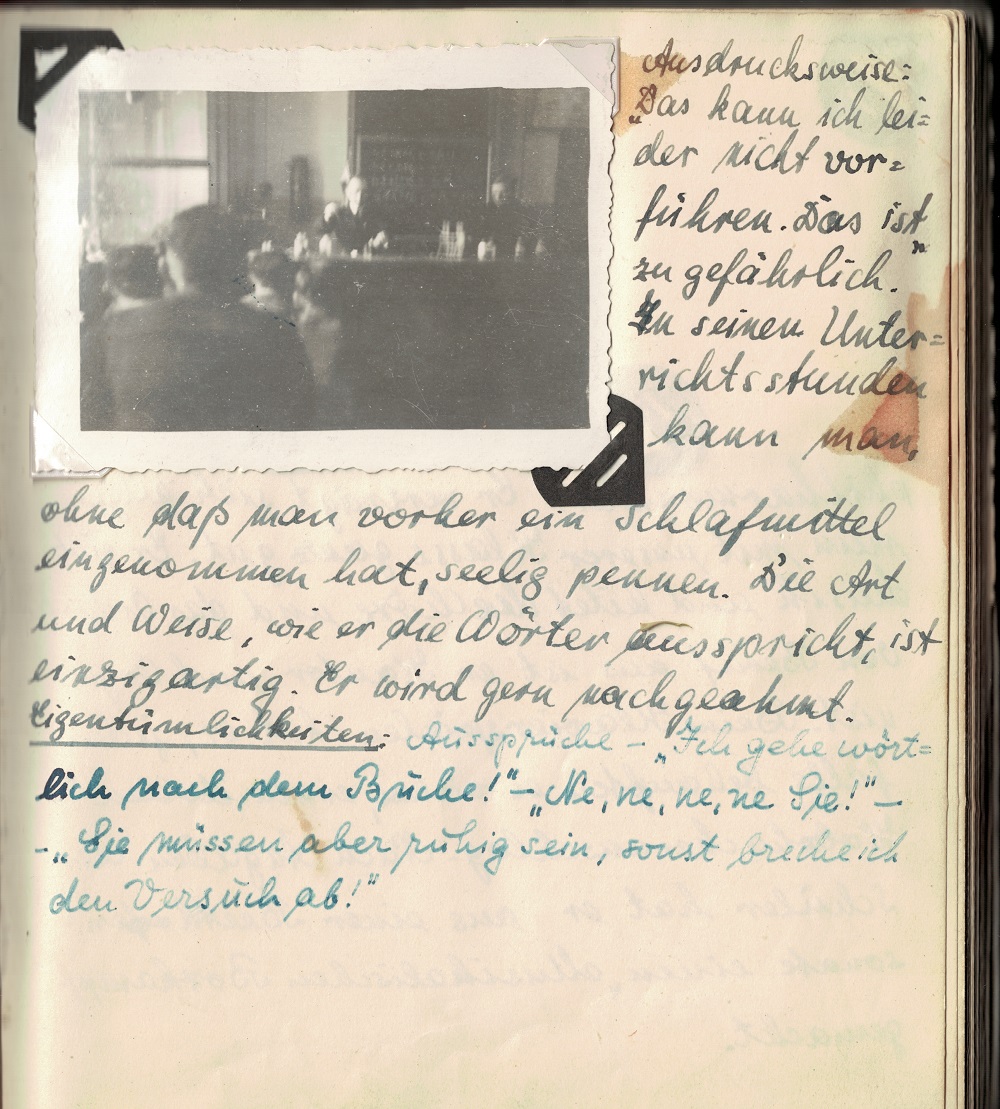 Ausdrucksweise:
„Das kann ich lei=
der nicht vor=
führen. Das ist
zu gefährlich."
In seinen Unter=
richtsstunden
kann man,
ohne daß man vorher ein Schlafmittel
eingenommen hat, seelig pennen. Die Art
und Weise, wie er die Wörter ausspricht, ist
einzigartig. Er wird gern nachgeahmt.
Eigentümlichkeiten: Aussprüche – „Ich gehe wört=
lich nach dem Buche!" – „Ne, ne, ne, ne Sie!" –
– „Sie müssen aber ruhig sein, sonst breche ich
den Versuch ab!"